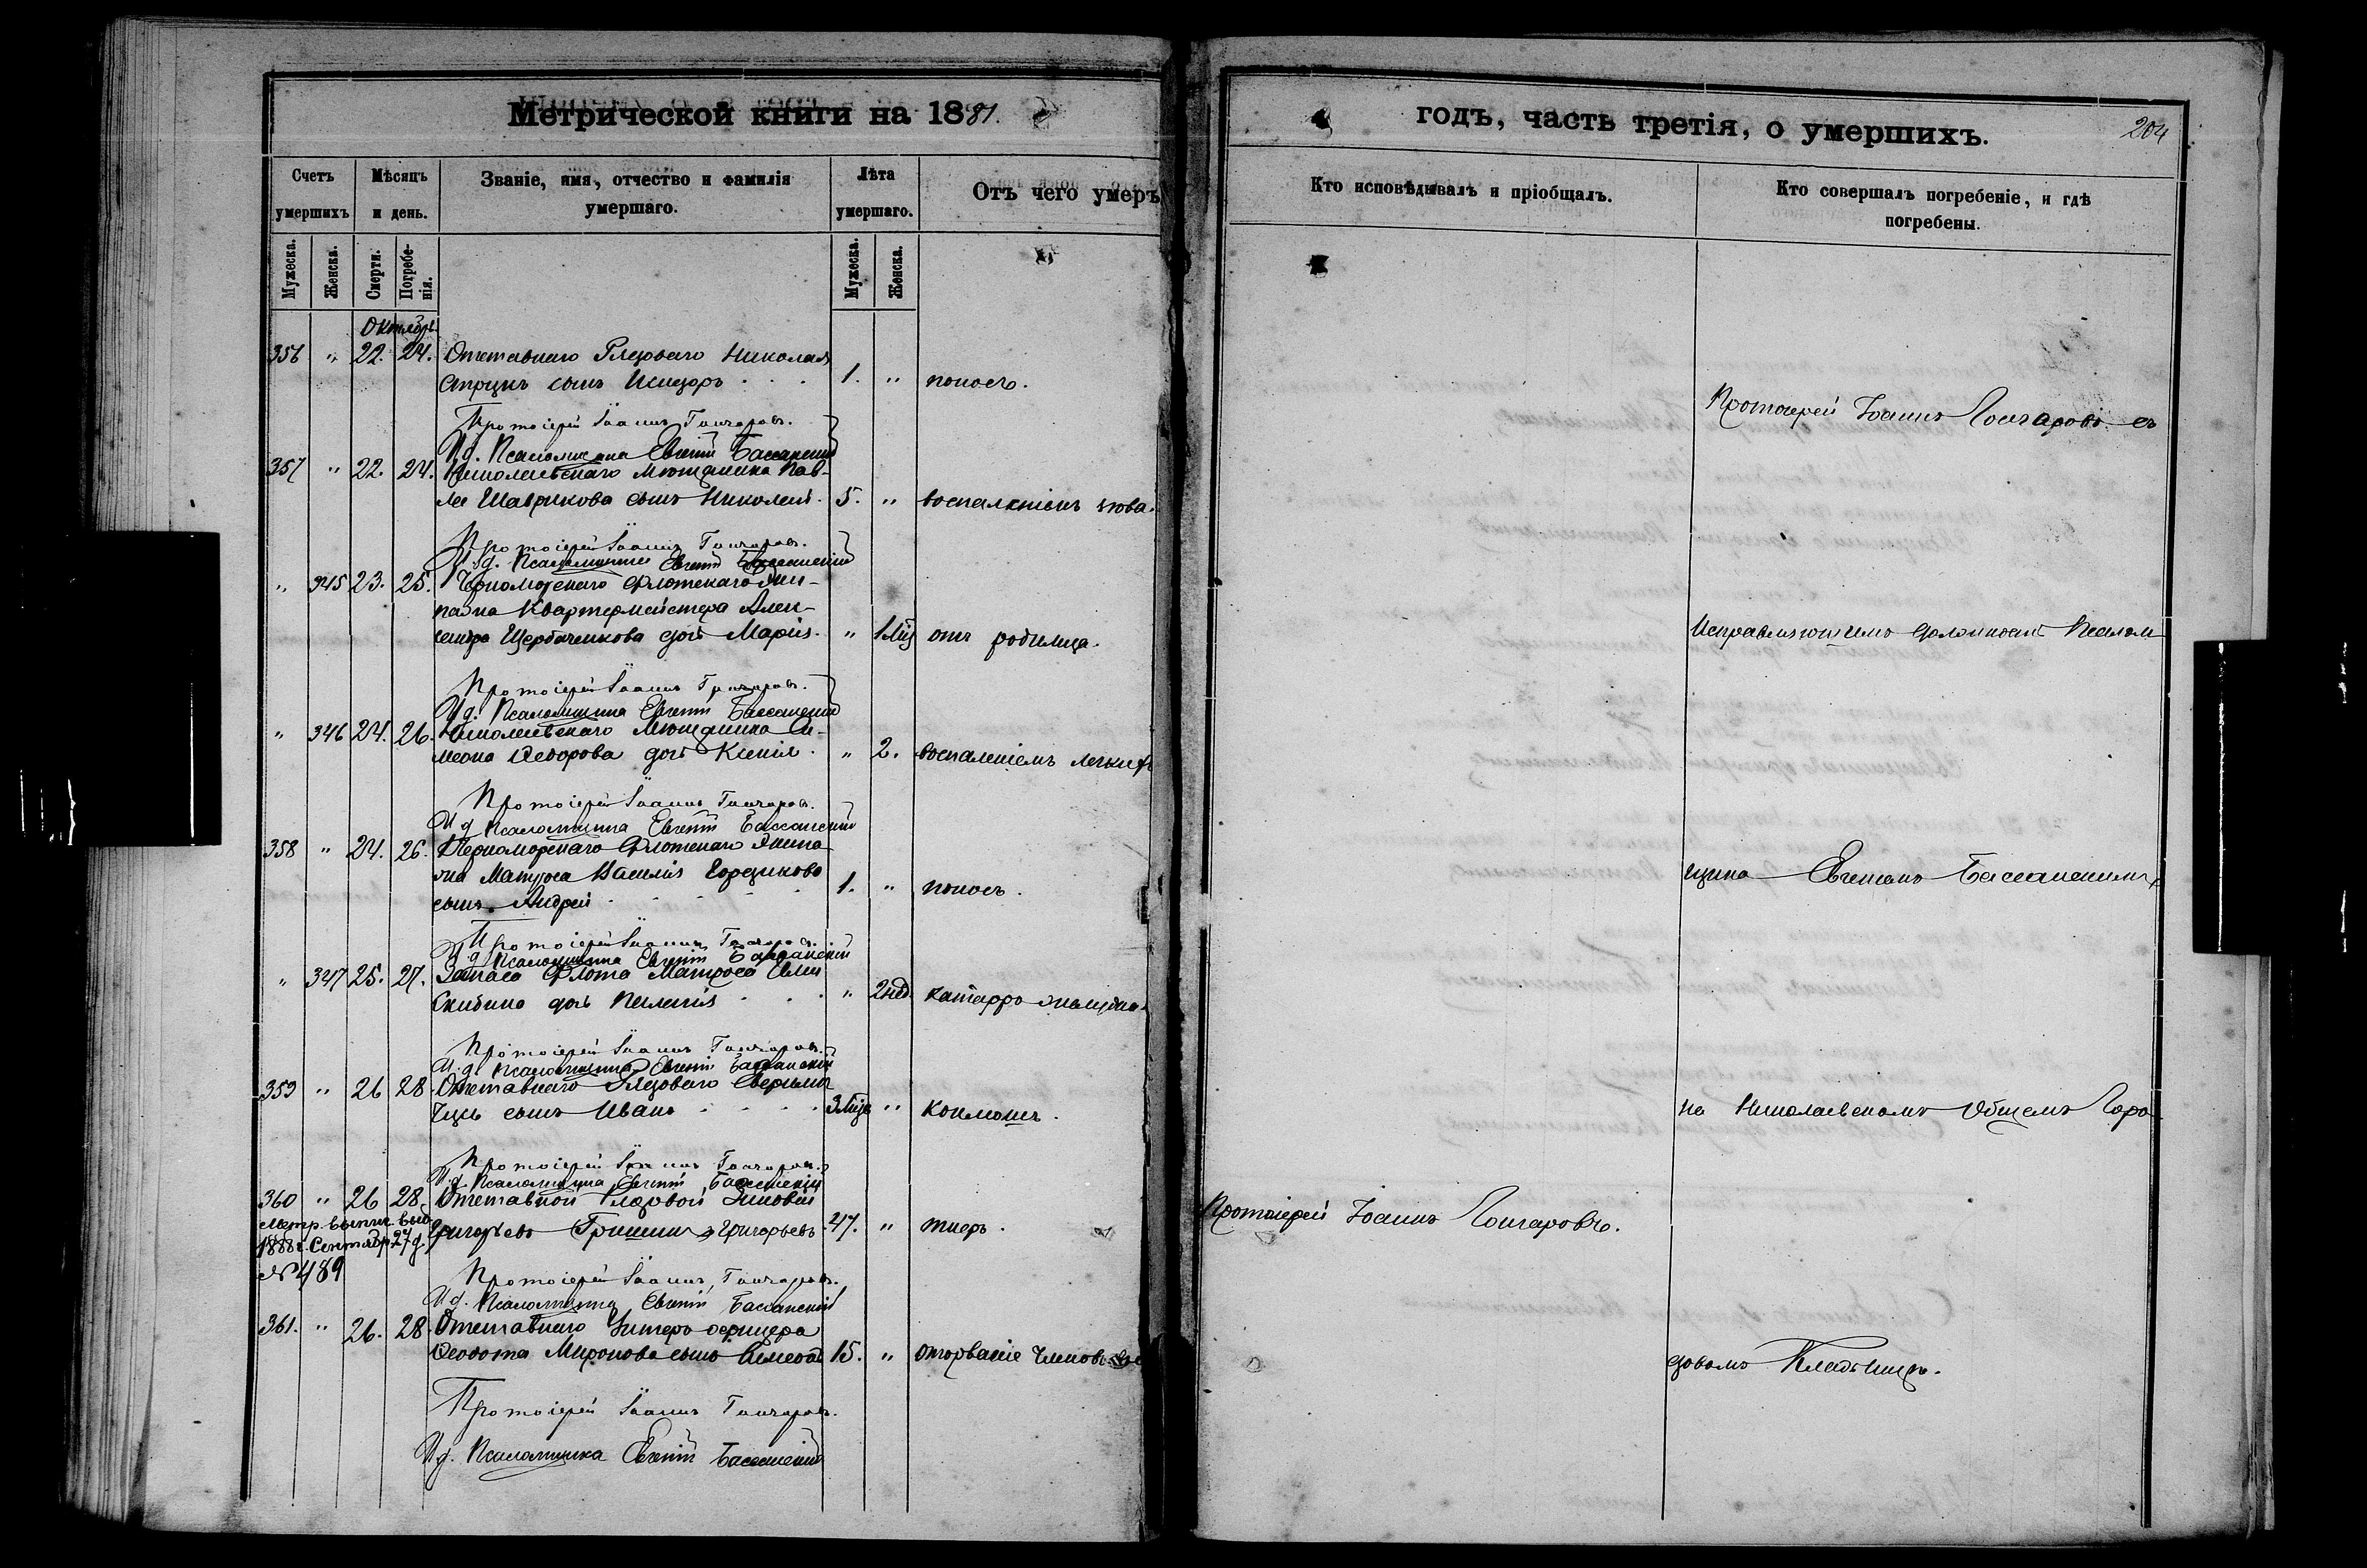 Метрической книги на 1881.
годъ, часть третія, о умершихъ.
204
Счетъ умершихъ
Мѣсяцъ и день.
Званіе, имя, отчество и фамилія умершаго.
Лѣта умершаго.
Отъ чего умеръ
Кто исповѣдывалъ и пріобщалъ.
Кто совершалъ погребеніе, и гдѣ погребены.
Мужеска.
Женска.
Смерти.
Погребе-
нія.
Мужеска.
Женска.
Октябрь
356 " 22. 24. Отставнаго Рядоваго Николая
сынъ Исидоръ 1. " поносъ.
Протоіерей Іоаннъ Гончаровъ.
И.д. Псаломщика Евгеній Бассанскій
357 " 22. 24. Николаевскаго Мѣщанина Пав-
ла Шаврикова сынъ Николай. 5. "
Протоіерей Іоаннъ Гончаровъ.
И.д. Псаломщика Евгеній Бассанскій
" 345 23. 25. Черноморскаго Флотскаго Эки-
пажа Квартермейстера Алек-
сандра Щербаченкова дочь Марія. " 1 Мц отъ родимца.
Протоіерей Іоаннъ Гончаровъ.
И.д. Псаломщика Евгеній Бассанскій
" 346 24. 26. Николаевскаго Мѣщанина Си-
меона Ѳедорова дочь Ксенія. " 2. воспаленіемъ легкихъ
Протоіерей Іоаннъ Гончаровъ.
И.д. Псаломщика Евгеній Бассанскій
358 " 24. 26. Черноморскаго Флотскаго Экипа-
жа Матроса Василія
сынъ Андрей 1. " поносъ.
Протоіерей Іоаннъ Гончаровъ.
И.д. Псаломщика Евгеній Бассанскій
" 347 25. 27. Запаса Флота Матроса
Скибина дочь Пелагія " 2 нед. катарръ
Протоіерей Іоаннъ Гончаровъ.
И.д. Псаломщика Евгеній Бассанскій
359 " 26 28. Отставнаго Рядоваго
сынъ Иванъ 3 Мца "
Протоіерей Іоаннъ Гончаровъ.
И.д. Псаломщика Евгеній Бассанскій
360 " 26 28. Отставной Рядовой Зиновій
Григорьевъ Гришинъ Григорьевъ 47. "
Метр. выпис. выд.
1888 г. Сентября 27 д.
№ 489
Протоіерей Іоаннъ Гончаровъ.
И.д. Псаломщика Евгеній Бассанскій
361. " 26. 28. Отставнаго Унтеръ-офицера
Ѳеодота Миронова сынъ Симеонъ 15. "
Протоіерей Іоаннъ Гончаровъ.
И.д. Псаломщика Евгеній Бассанскій
Протоіерей Іоаннъ Гончаровъ.
Протоіерей Іоаннъ Гончаровъ съ
Исправляющимъ должность Псалом-
щика Евгеніемъ Бассанскимъ,
на Николаевскомъ Общемъ Горо-
довомъ Кладбищѣ.